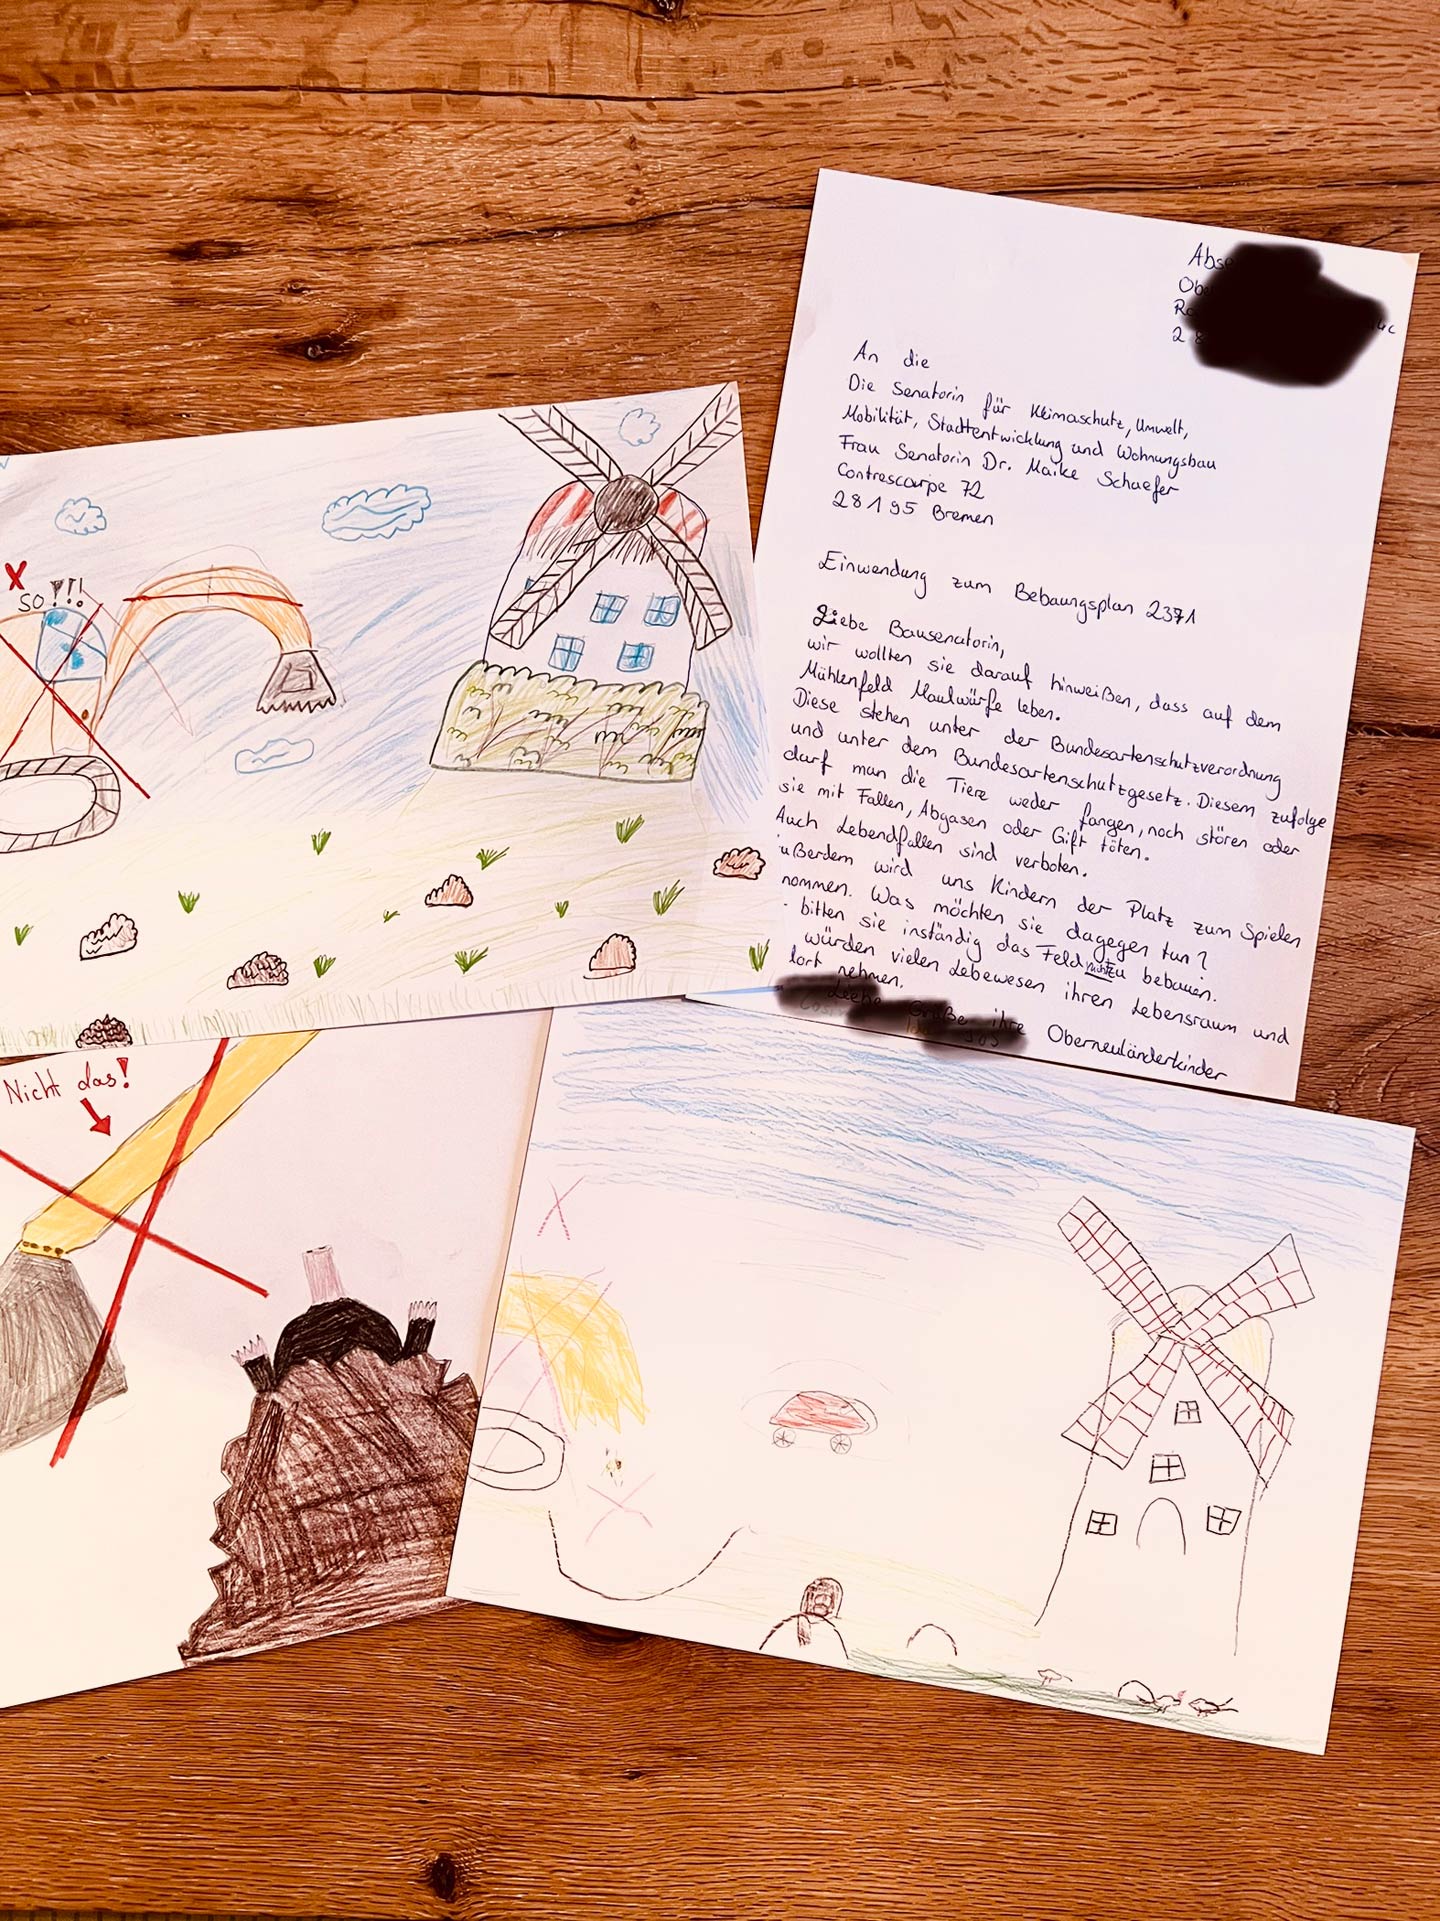 An die
Die Senatorin für Klimaschutz, Umwelt,
Mobilität, Stadtentwicklung und Wohnungsbau
Frau Senatorin Dr. Maike Schaefer
Contrescarpe 72
28195 Bremen
Einwendung zum Bebauungsplan 2371
Liebe Bausenatorin,
wir wollten sie darauf hinweißen, dass auf dem
Mühlenfeld Maulwürfe leben.
Diese stehen unter der Bundesartenschutzverordnung
und unter dem Bundesartenschutzgesetz. Diesem zufolge
darf man die Tiere weder fangen, noch stören oder
sie mit Fallen, Abgasen oder Gift töten.
Auch Lebendfallen sind verboten.
ußerdem wird uns Kindern der Platz zum Spielen
nommen. Was möchten sie dagegen tun?
bitten sie inständig das Feld nicht zu bebauen.
würden vielen Lebewesen ihren Lebensraum und
Ort nehmen.
Liebe Grüße ihre Oberneuländerkinder
X
SO!!!
Nicht das!